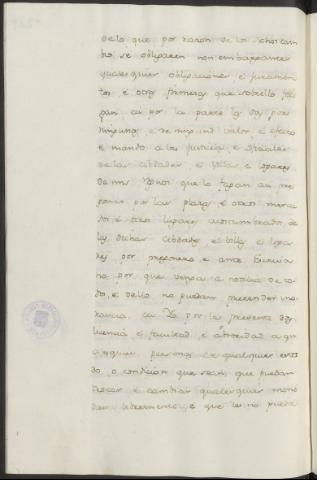 de lo que por razon de los dichos cam
bio, se obligaren non embargantes
qualesquier obligaciones, e juramen
tos, e otras firmezas que sobrello fa
gan ca por la presente las doy por
ningunas e de ningund valor, e efecto
e mando a las justicias, e oficiales
de las cibdades, e villas, e logares
de mis Reynos que lo fagan asi pre
gonar por las plazas, e otros merca
dos, e otros lugares acostumbrados, de
las dichas cibdades, e villas, e loga
res por pregonero e ante Escriva
no por que venga a noticia de to
do, e dello no puedan pretender ino
rancia, ca Yo por la presente doy
licencia e facultad, e abtoridad a qua
lesquier personas de qualquier estado
o condicion que sean, que puedan
trocar e cambiar qualesquier mone
das libremente, e que les no pueda